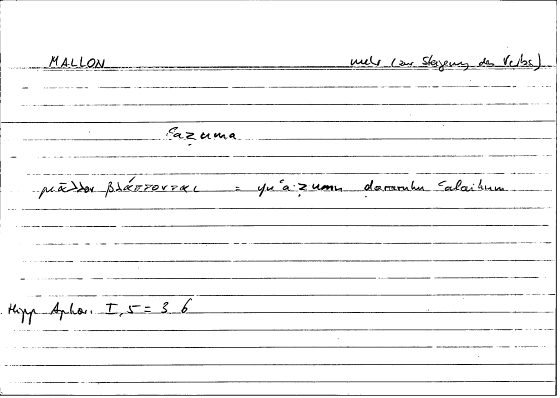 MALLON mehr (zur Steigerung des Verbs)
ʿaẓuma
μᾶλλον βλάπτονται = yuʿaẓẓimu ḍararuhu ʿalaihim
Hipp Aphor. I, 5 = 3 6